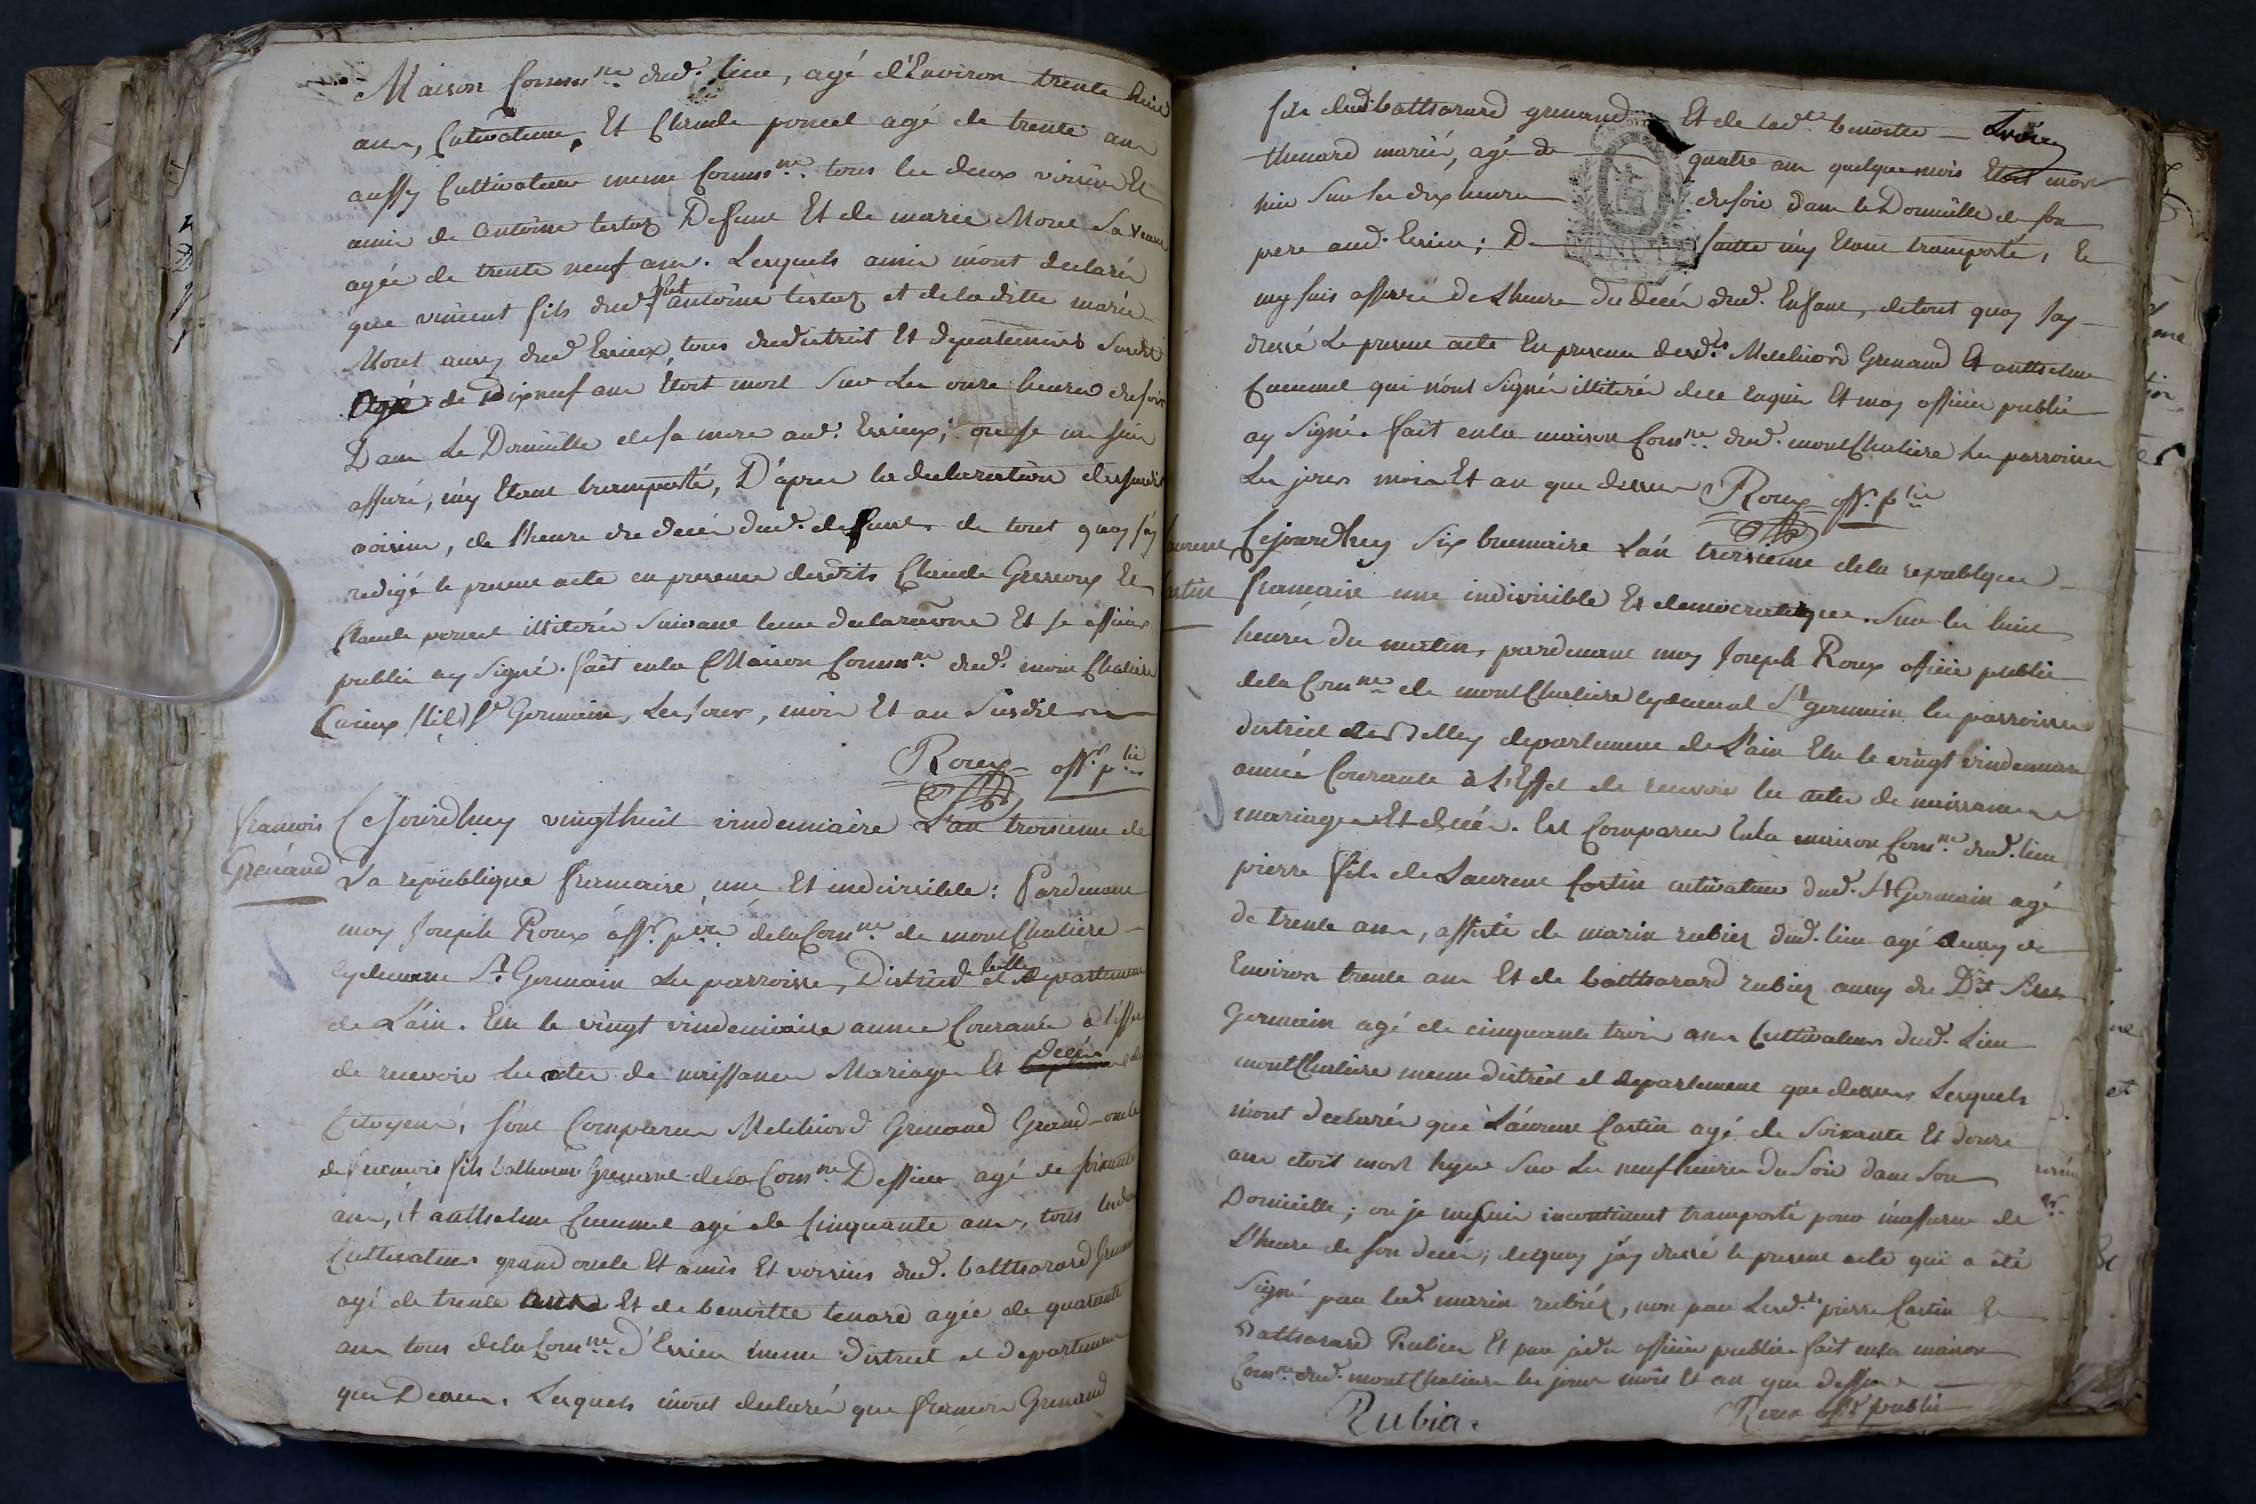 Maison Comm.ne dud. lieu, agé d'Environ trente huit
ans, Cultivateur, Et Claude poncet agé de trente ans
aussy Cultivateur meme Comm.ne tous les deux voisins Et
amis de antoine Defunt Et de marie Moret Sa veuve
agée de trente neuf ans. Lesquels ainsi m'ont declarés
que vincent fils dud. antoine et de la ditte marie
Moret aussy dud Essieux, tous du district Et departement Susdit
Agé de dixneuf ans Etoit mort Sur Les onze heures du soir
Dans Le Domicille de sa mere aud. Essieux; ou je me suis
assuré, m'y Etant transporté, D'aprés la declaration des susdits
voisins, de l'heure du decés dud. defunt. de tout quoy j'ay
redigé le present acte en presence desdits Claude Et
Claude poncet illiterés Suivant leur declaration Et je officier
public ay Signé. fait en la Maison Comm.ne dud. mont Chaliere
St Germain, Les Jour, mois Et an Susdit
Roux off.r p.lic
francois
Grenand
Cejourdhuy vingthuit vindemiaire L'an troisieme de
La republique francaise une Et indivisible: Pardevant
moy Joseph Roux off.r p.lic de la Com.ne de mont Chaliere
cydevant St Germain Les parroisses, District de belley et departement
de L'ain. Elu le vingt vindemiaire année Courante à l'effet
de recevoir Les actes de naissances Mariages Et decés des
Citoyens, sont Comparus Melchiord Grenand Grand-oncle
de francois fils balthazard Grenand de la Com.ne Dessieux agé de soixante
ans, et anthelme agé de Cinquante ans, tous les deux
Cultivateurs grand oncle Et amis Et voisins dud. balthazard Grenand
agé de trente Et de benoitte tenard agée de quarante
ans tous de la Com.ne d'Essieu meme District et departement
que Dessus. Lesquels m'ont declarés que francois Grenand
fils dud balthazard grenand Et de lad.e benoitte
thenard mariés, agé de quatre ans quelques mois Etoit mort
hier Sur les dix heures du soir dans le Domicille de son
pere aud. Essieu; De suitte m'y Etant transporté, Et
my suis assurré de L'heure du decés dud. Enfant, de tout quoy J'ay
dressé Le present acte En presence desd.ts Melchiord Grenand Et anthelme
qui n'ont Signés illiterés de ce enquis Et moy officier public
ay Signé. fait en la maison Com.ne dud. mont Chaliere les parroisses
Les jours mois Et an que dessus Roux off. p.lic
Laurent
Castin
Cejourdhuy Six brumaire L'an troisieme de la republique
francaise une indivisible Et democratique. Sur les huit
heures du matin, pardevant moy Joseph Roux officier public
de la Com.ne de mont Chaliere cydevant St germain les parroisses
district de Belley departement de L'ain Elu le vingt vindemiaire
année Courante à L'Effet de recevoir les actes de naissances
mariages Et decés. Est Comparu En la maison Com.ne dud. lieu
pierre fils de Laurent Castin cultivateur dud. St Germain agé
de trente ans, assisté de marin rubier dud. lieu agé aussy de
Environ trente ans Et de balthazard rubier aussy du Dit St
Germain agé de cinquante trois ans Cultivateurs dud. Lieu
mont Chaliere meme district et departement que dessus Lesquels
m'ont declarés que Laurent Castin agé de Soixante Et douze
ans etoit mort hyer Sur Les neuf heures du Soir dans Son
Domicille; ou je me suis incontinent transporté pour m'assurer de
L'heure de son decés; dequoy j'ay dressé le present acte qui a été
Signé par led. marin rubier, non par Lesd.ts pierre Castin Et
Balthazard Rubier Et par je dit officier public fait en la maison
Com.ne dud. mont Chaliere les jour mois Et an que dessus
Rubier. Roux off.r public